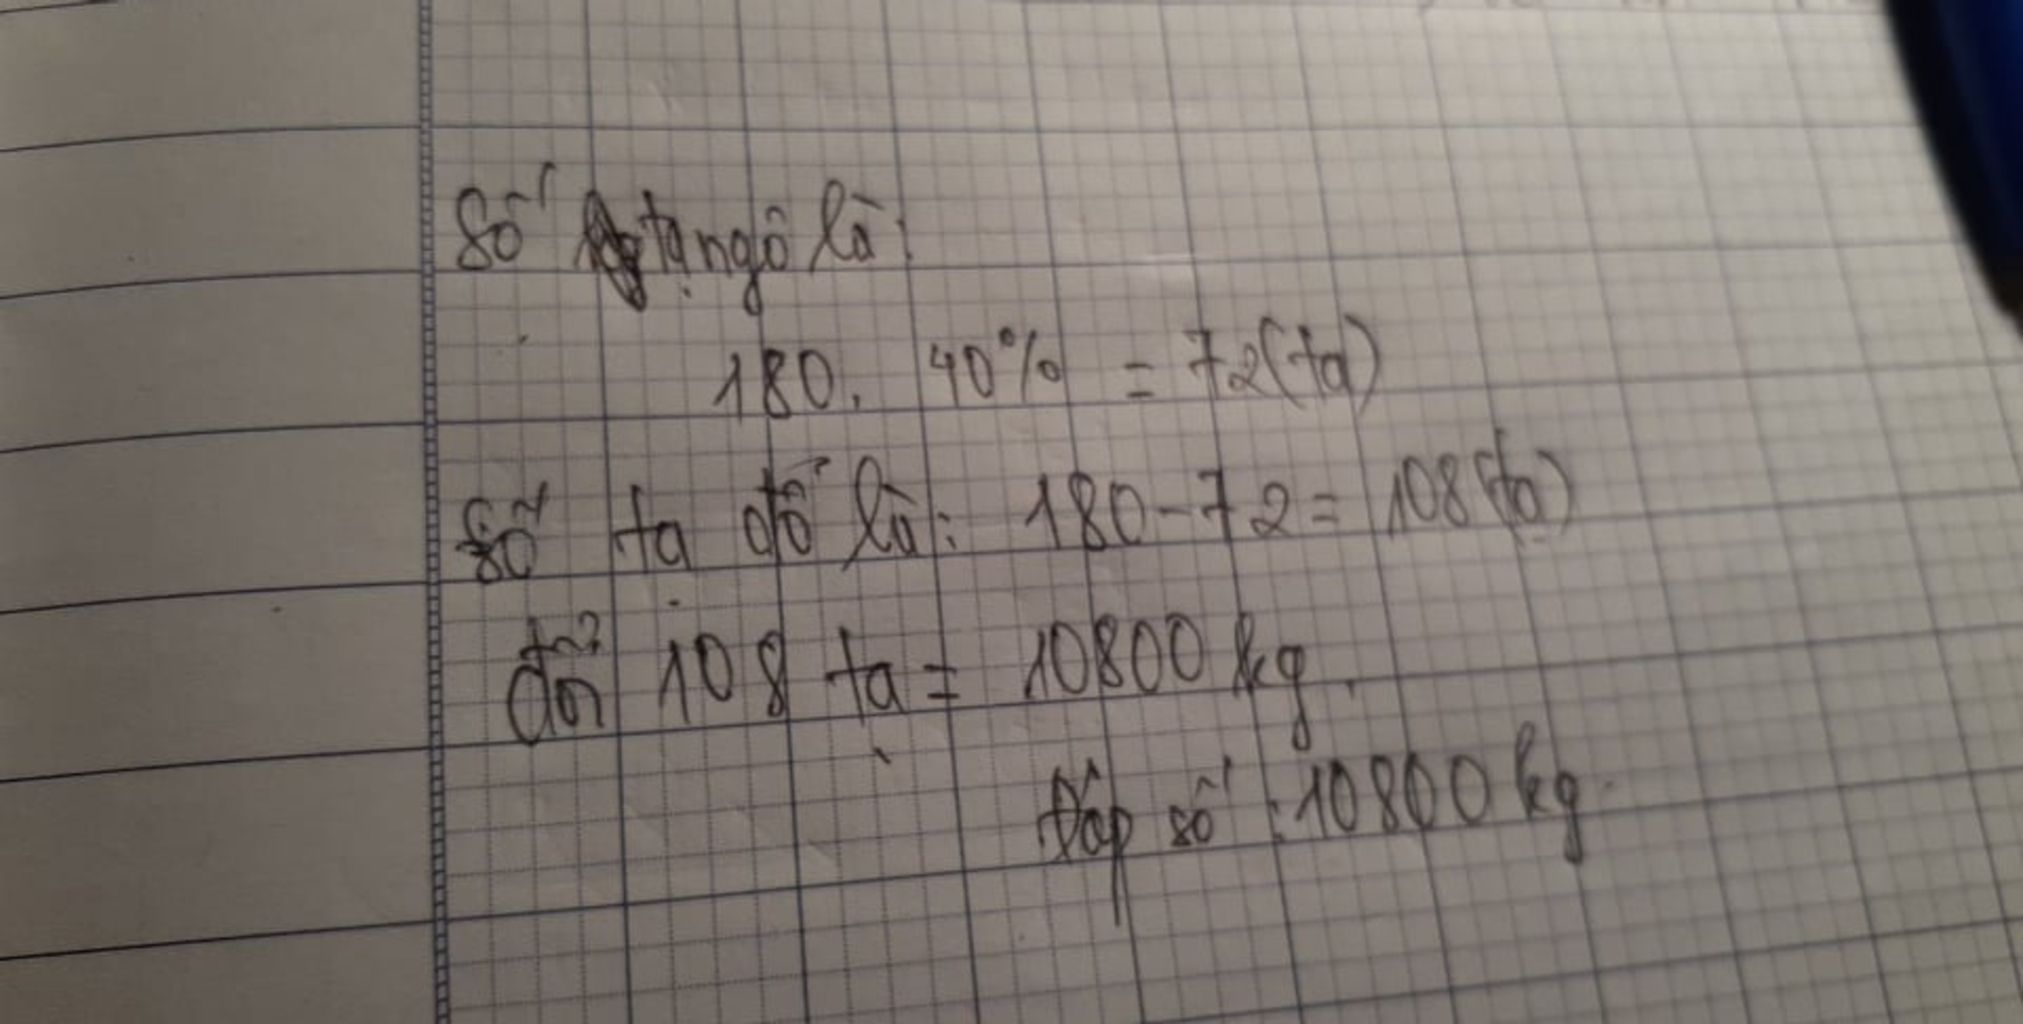 Số tạ ngô là:
180. 40% = 72(tạ)
Số tạ đỗ là: 180-72= 108(tạ)
đổi 108 tạ = 10800 kg.
Đáp số : 10800 kg.